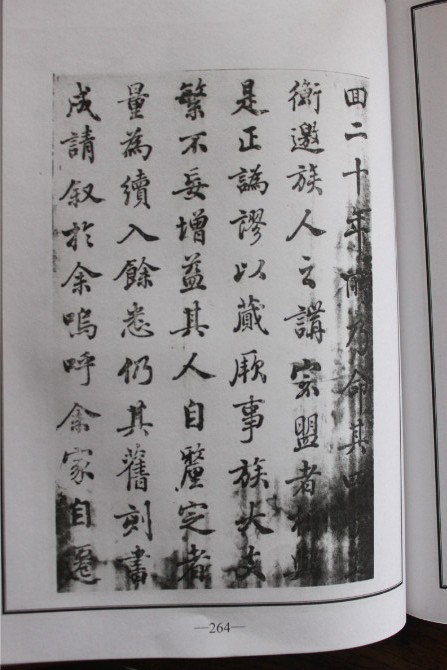 囬二十年所乃命其四
衡邀族人之講宗盟者相與
是正譌謬以蕆厥事族大支
繁不妄增益其人自釐定者
量為續入餘悉仍其舊刻書
成請叙於余嗚呼余家自遷
—264—